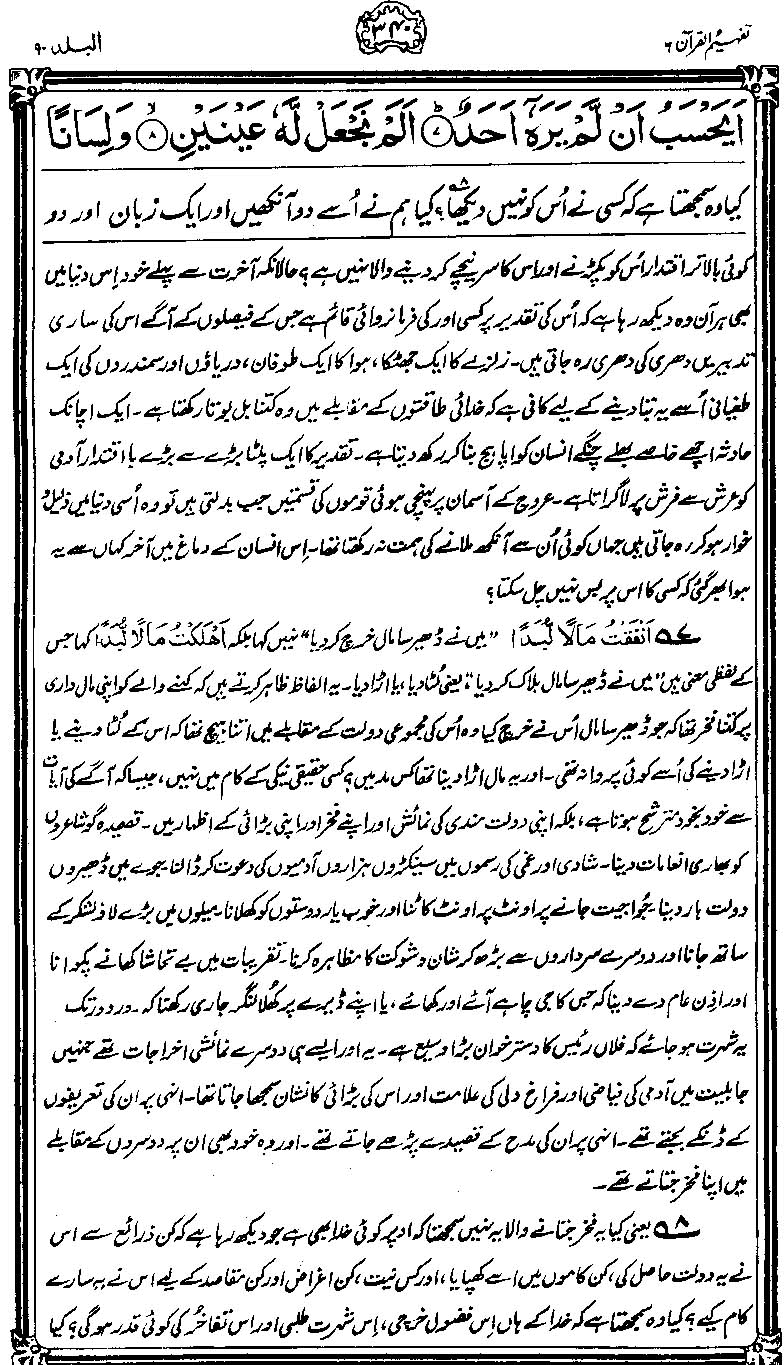 تفہیم القرآن ۶
۳۴۰
البلد ۹۰
اَیَحْسَبُ اَنْ لَّمْ یَرَهٗۤ اَحَدٌ ؕ۷ اَلَمْ نَجْعَلْ لَّهٗ عَیْنَیْنِ ۙ۸ وَلِسَانًا
کیا وہ سمجھتا ہے کہ کسی نے اُس کو نہیں دیکھا؟۸ کیا ہم نے اُسے دو آنکھیں اور ایک زبان اور دو
کوئی بالاتر اقتدار اُس کو پکڑنے اور اس کا سر نیچے کر دینے والا نہیں ہے؟ حالانکہ آخرت سے پہلے خود اِس دنیا میں
بھی ہر آن وہ دیکھ رہا ہے کہ اُس کی تقدیر پر کسی اور کی فرمانروائی قائم ہے جس کے فیصلوں کے آگے اس کی ساری
تدبیریں دھری کی دھری رہ جاتی ہیں۔ زلزلے کا ایک جھٹکا، ہوا کا ایک طوفان، دریاؤں اور سمندروں کی ایک
طغیانی اُسے یہ بتا دینے کے لیے کافی ہے کہ خدائی طاقتوں کے مقابلے میں وہ کتنا بل بوتا رکھتا ہے۔ ایک اچانک
حادثہ اچھے خاصے بھلے چنگے انسان کو اپاہج بنا کر رکھ دیتا ہے۔ تقدیر کا ایک پلٹا بڑے سے بڑے با اقتدار آدمی
کو عرش سے فرش پر لا گراتا ہے۔ عروج کے آسمان پر پہنچی ہوئی قوموں کی قسمتیں جب بدلتی ہیں تو وہ اُسی دنیا میں ذلیل و
خوار ہو کر رہ جاتی ہیں جہاں کوئی اُن سے آنکھ ملانے کی ہمت نہ رکھتا تھا۔ اِس انسان کے دماغ میں آخر کہاں سے یہ
ہوا بھر گئی کہ کسی کا اس پر بس نہیں چل سکتا؟
۷ اَنْفَقْتُ مَالًا لُّبَدًا "میں نے ڈھیر سا مال خرچ کر دیا" نہیں کہا بلکہ اَھْلَکْتُ مَالًا لُّبَدًا کہا جس
کے لفظی معنی ہیں "میں نے ڈھیر سا مال ہلاک کر دیا"، یعنی لُٹا دیا، یا اڑا دیا۔ یہ الفاظ ظاہر کرتے ہیں کہ کہنے والے کو اپنی مال داری
پر کتنا فخر تھا کہ جو ڈھیر سا مال اُس نے خرچ کیا وہ اُس کی مجموعی دولت کے مقابلے میں اتنا ہیچ تھا کہ اس کے لُٹا دینے یا
اڑا دینے کی اُسے کوئی پروا نہ تھی۔ اور یہ مال اڑا دینا تھا کس مد میں؟ کسی حقیقی نیکی کے کام میں نہیں، جیسا کہ آگے کی آیات
سے خود بخود مترشح ہوتا ہے، بلکہ اپنی دولت مندی کی نمائش اور اپنے فخر اور اپنی بڑائی کے اظہار میں۔ قصیدہ گو شاعروں
کو بھاری انعامات دینا۔ شادی اور غمی کی رسموں میں سینکڑوں ہزاروں آدمیوں کی دعوت کر ڈالنا۔ جوے میں ڈھیروں
دولت ہار دینا۔ جُوا جیت جانے پر اونٹ پر اونٹ کاٹنا اور خوب یار دوستوں کو کھلانا۔ میلوں میں بڑے لاؤ لشکر کے
ساتھ جانا اور دوسرے سرداروں سے بڑھ کر شان و شوکت کا مظاہرہ کرنا۔ تقریبات میں بے تحاشا کھانے پکوانا
اور اذنِ عام دے دینا کہ جس کا جی چاہے آئے اور کھائے، یا اپنے ڈیرے پر کھُلا لنگر جاری رکھنا کہ دور دور تک
یہ شہرت ہو جائے کہ فلاں رئیس کا دسترخوان بڑا وسیع ہے۔ یہ اور ایسے ہی دوسرے نمائشی اخراجات تھے جنہیں
جاہلیت میں آدمی کی فیاضی اور فراخ دلی کی علامت اور اس کی بڑائی کا نشان سمجھا جاتا تھا۔ انہی پر ان کی تعریفوں
کے ڈنکے بجتے تھے۔ انہی پر ان کی مدح کے قصیدے پڑھے جاتے تھے۔ اور وہ خود بھی ان پر دوسروں کے مقابلے
میں اپنا فخر جتاتے تھے۔
۸ یعنی کیا یہ فخر جتانے والا یہ نہیں سمجھتا کہ اوپر کوئی خدا بھی ہے جو دیکھ رہا ہے کہ کن ذرائع سے اس
نے یہ دولت حاصل کی، کن کاموں میں اسے کھپایا، اور کس نیت، کن اغراض اور کن مقاصد کے لیے اس نے یہ سارے
کام کیے؟ کیا وہ سمجھتا ہے کہ خدا کے ہاں اِس فضول خرچی، اِس شہرت طلبی اور اس تفاخُر کی کوئی قدر ہو گی؟ کیا